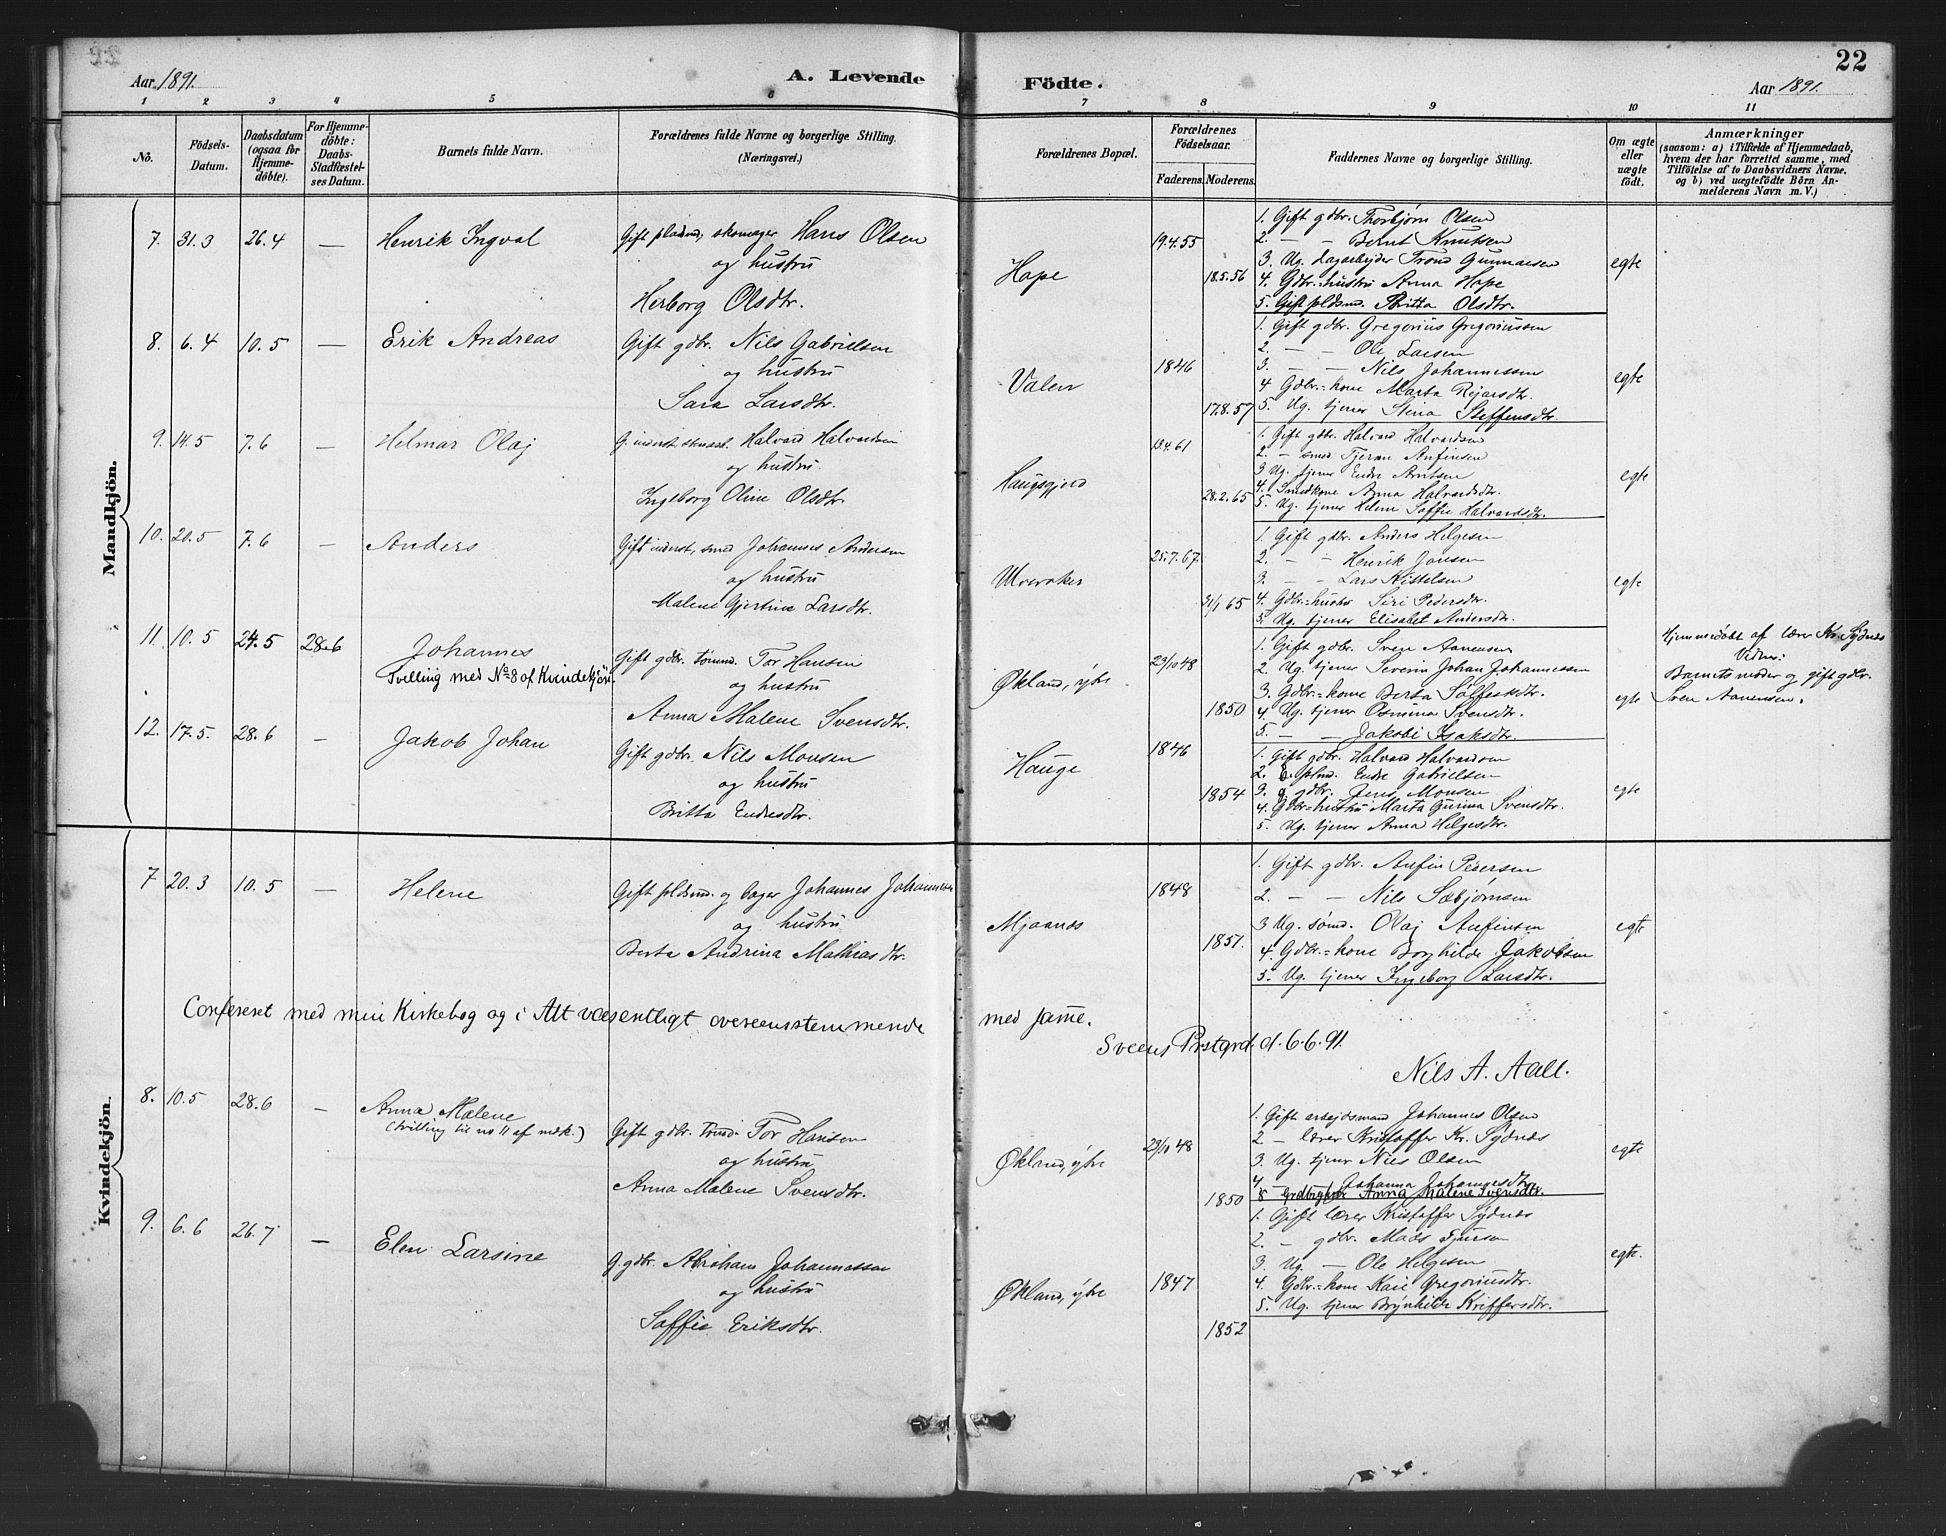 22
Aar 1891.
A. Levende Födte.
Aar 1891.
1 2 3 4 5 6 7 8 9 10 11
No.
Födsels-Datum.
Daabsdatum (ogsaa for Hjemme-döbte).
For Hjemme-döbte: Daabs-Stadfæstel-ses Datum.
Barnets fulde Navn.
Forældrenes fulde Navne og borgerlige Stilling. (Næringsvei.)
Forældrenes Bopæl.
Forældrenes Födselsaar.
Faderens. Moderens.
Faddernes Navne og borgerlige Stilling.
Om ægte eller uægte födt.
Anmærkninger
(saasom: a) i Tilfælde af Hjemmedaab, hvem der har forrettet samme, med Tilföielse af to Daabsvidners Navne, og b) ved uægtefödte Börn Anmelderens Navn m. V.)
Mandkjön.
7. 31.3 26.4 — Henrik Ingval
Gift pladsm, skomager Hans Olsen
og hustru
Herborg Olsdtr.
Hope
19.4.55
18.5.56
1. Gift gdbr. Thorbjørn Olsen
2. — — Bernt Knutsen
3. Ug. dagarbejder Trond Gunnarsen
4. Gdbr.=hustru Anna Hope
5. Gift pldsm. Britta Olsdtr.
egte
8. 6.4 10.5 — Erik Andreas
Gift gdbr. Nils Gabrielsen
og hustru
Sara Larsdtr.
Valen
1846
17.8.57
1. Gift gdbr. Gregorius Gregoriussen
2. — — Ole Larsen
3. — — Nils Johannessen
4 Gdbr.=kone Marta Rejarsdtr.
5. Ug. tjener Stina Steffensdtr.
egte
9. 14.5 7.6 — Helmar Olaj
G. inderst Halvard Halvardsen
og hustru.
Ingeborg Oline Olsdtr.
Haugsgjerd
13.4.61
28.2.65
1. Gift gdbr. Halvard Halvardsen
2. — smed Tjeran Anfinsen
3 Ug. tjener Endre Arntsen
4. Smedkone Anna Halvardsdtr.
5. Ug. tjener Helene Soffie Halvardsdtr.
egte
10. 20.5 7.6 — Anders
Gift inderst, smed Johannes Andersen
og hustru
Malene Gjertine Larsdtr.
Utvaaker
25.7.67.
31/1 65
1. Gift gdbr. Anders Helgesen
2. — — Henrik Jonsen
3. — — Lars Kittelsen
4. Gdbr.=hustru Siri Pedersdtr.
5. Ug. tjener Elisabet Andersdtr.
egte
11. 10.5 24.5 28.6 Johannes
Tvilling med No 8 af Kvindekjön.
Gift gdbr. tømmd. Tor Hansen
og hustru
Anna Malene Svensdtr.
Økland, ytre
23/10 48
1850
1. Gift gdbr. Sven Aanensen
2. Ug. tjener Severin Johan Johannessen
3. Gdbr.=kone Berta Soffiesdtr.
4. Ug. tjener Osmina Svensdtr.
5. — — Jakobi Isaksdtr.
egte
Hjemmedöbt af lærer Kr. Sydnes
Vidner:
Barnets moder og gift gdbr.
Sven Aanensen.
12. 17.5. 28.6 — Jakob Johan
Gift gdbr. Nils Monsen
og hustru
Britta Endresdtr.
Hauge
1846
1854
1. Gift gdbr. Halvard Halvardsen
2. G. pldm. Endre Gabrielsen
3. g gdbr. Jens Monsen
4. Gdbr.=hustru Marta Gurina Svensdtr.
5. Ug. tjener Anna Helgesdtr.
egte
Kvindekjön.
7 20.3 10.5 — Helene
Gift pldsm. og bager Johannes Johannesen
og hustru
Berta Andrina Mathiasdtr.
Mjaanes
1848
1851.
1. Gift gdbr. Anfin Pedersen
2. — — Nils Sæbjørnsen
3 Ug. sømd. Olaj Anfinsen
4. Gdbr.=kone Borghilde Jakobsen
5. Ug. tjener Ingeborg Larsdtr.
egte
Confereret med min Kirkebog og i Alt væsentligt overeensstemmende med samme.
Sveens Prstgrd. d. 6.6.91.
Nils A. Aall.
8. 10.5 28.6 — Anna Malene
(tvilling til no 11 af mdk.)
Gift gdbr. tmd. Tor Hansen
og hustru
Anna Malene Svensdtr.
Økland, ytre
23/10 48
1850
1. Gift arbejdsmand Johannes Olsen
2 — lærer Kristoffer Kr. Sydnes
3. Ug. tjener Nils Olsen
4. — — Johanna Johannesdtr.
5 — Anna Malene Svensdtr.
egte
9. 6.6 26.7 — Elen Larsine
G. gdbr. Abraham Johannessen
og hustru
Soffie Eriksdtr.
Økland, ytre
1847
1852
1. Gift lærer Kristoffer Sydnes
2. — gdbr. Mads Tjersen
3. Ug — Ole Helgesen
4. Gdbr.=kone Kari Gregoriusdtr.
5. Ug. tjener Brynhilde Kriffersdtr.
egte.